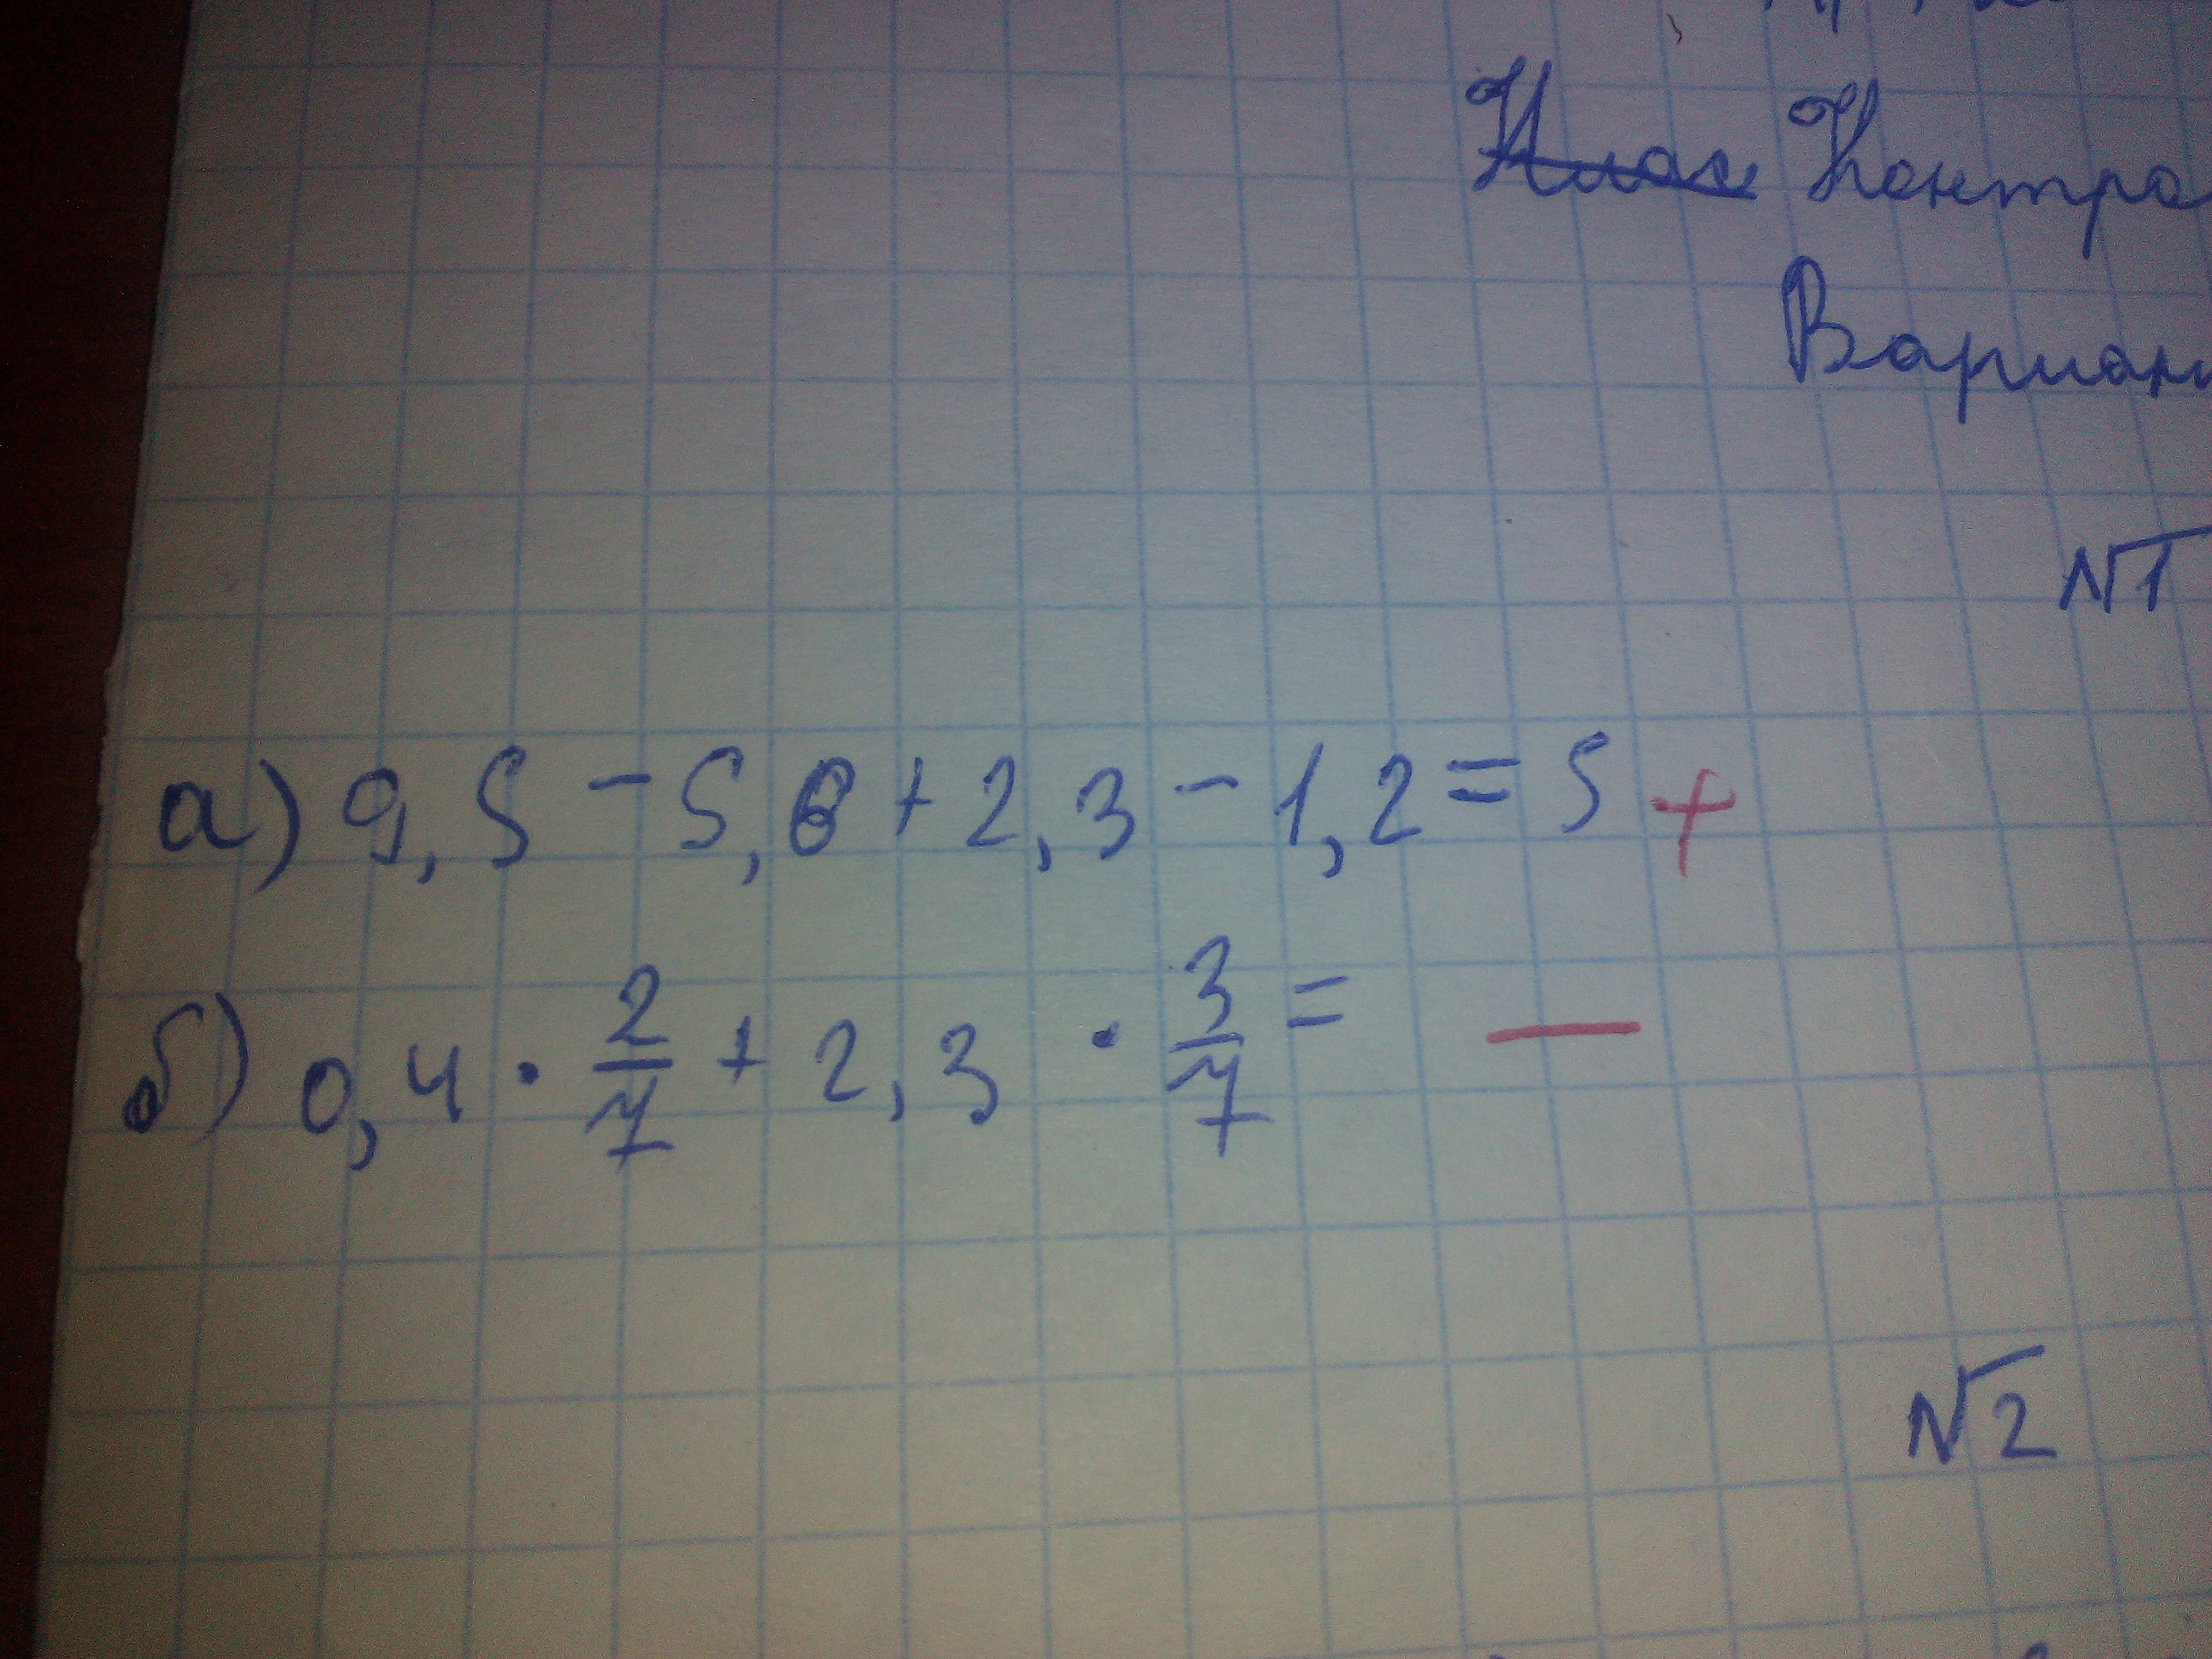 Клас Контро
Вариан
№1
а) 9,5 - 5,6 + 2,3 - 1,2 = 5 +
б) 0,4 · 2/7 + 2,3 · 3/7 = —
№2